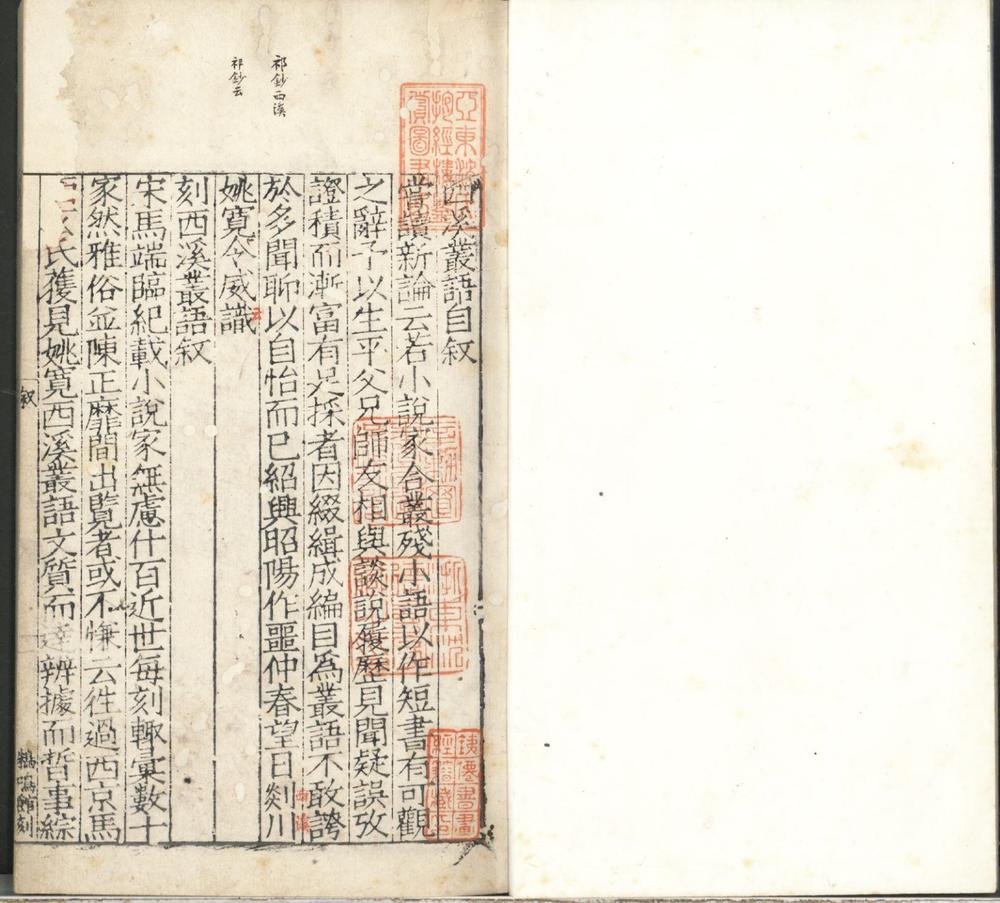 西溪叢語自叙
嘗讀新論云若小說家合叢殘小語以作短書有可觀
之辭予以生平父兄師友相與談說履歷見聞疑誤攷
證積而漸富有足採者因綴緝成編目爲叢語不敢誇
於多聞聊以自怡而已紹興昭陽作噩仲春望日剡川
姚寬令威識
刻西溪叢語叙
宋馬端臨紀載小說家無慮什百近世每刻輙彙數十
家然雅俗並陳正靡間出覽者或不慊云徃過西京馬
氏獲見姚寬西溪叢語文質而達辨據而晢事綜
祁鈔西溪
祁鈔云
西溪
叙
鶴鳴館刻